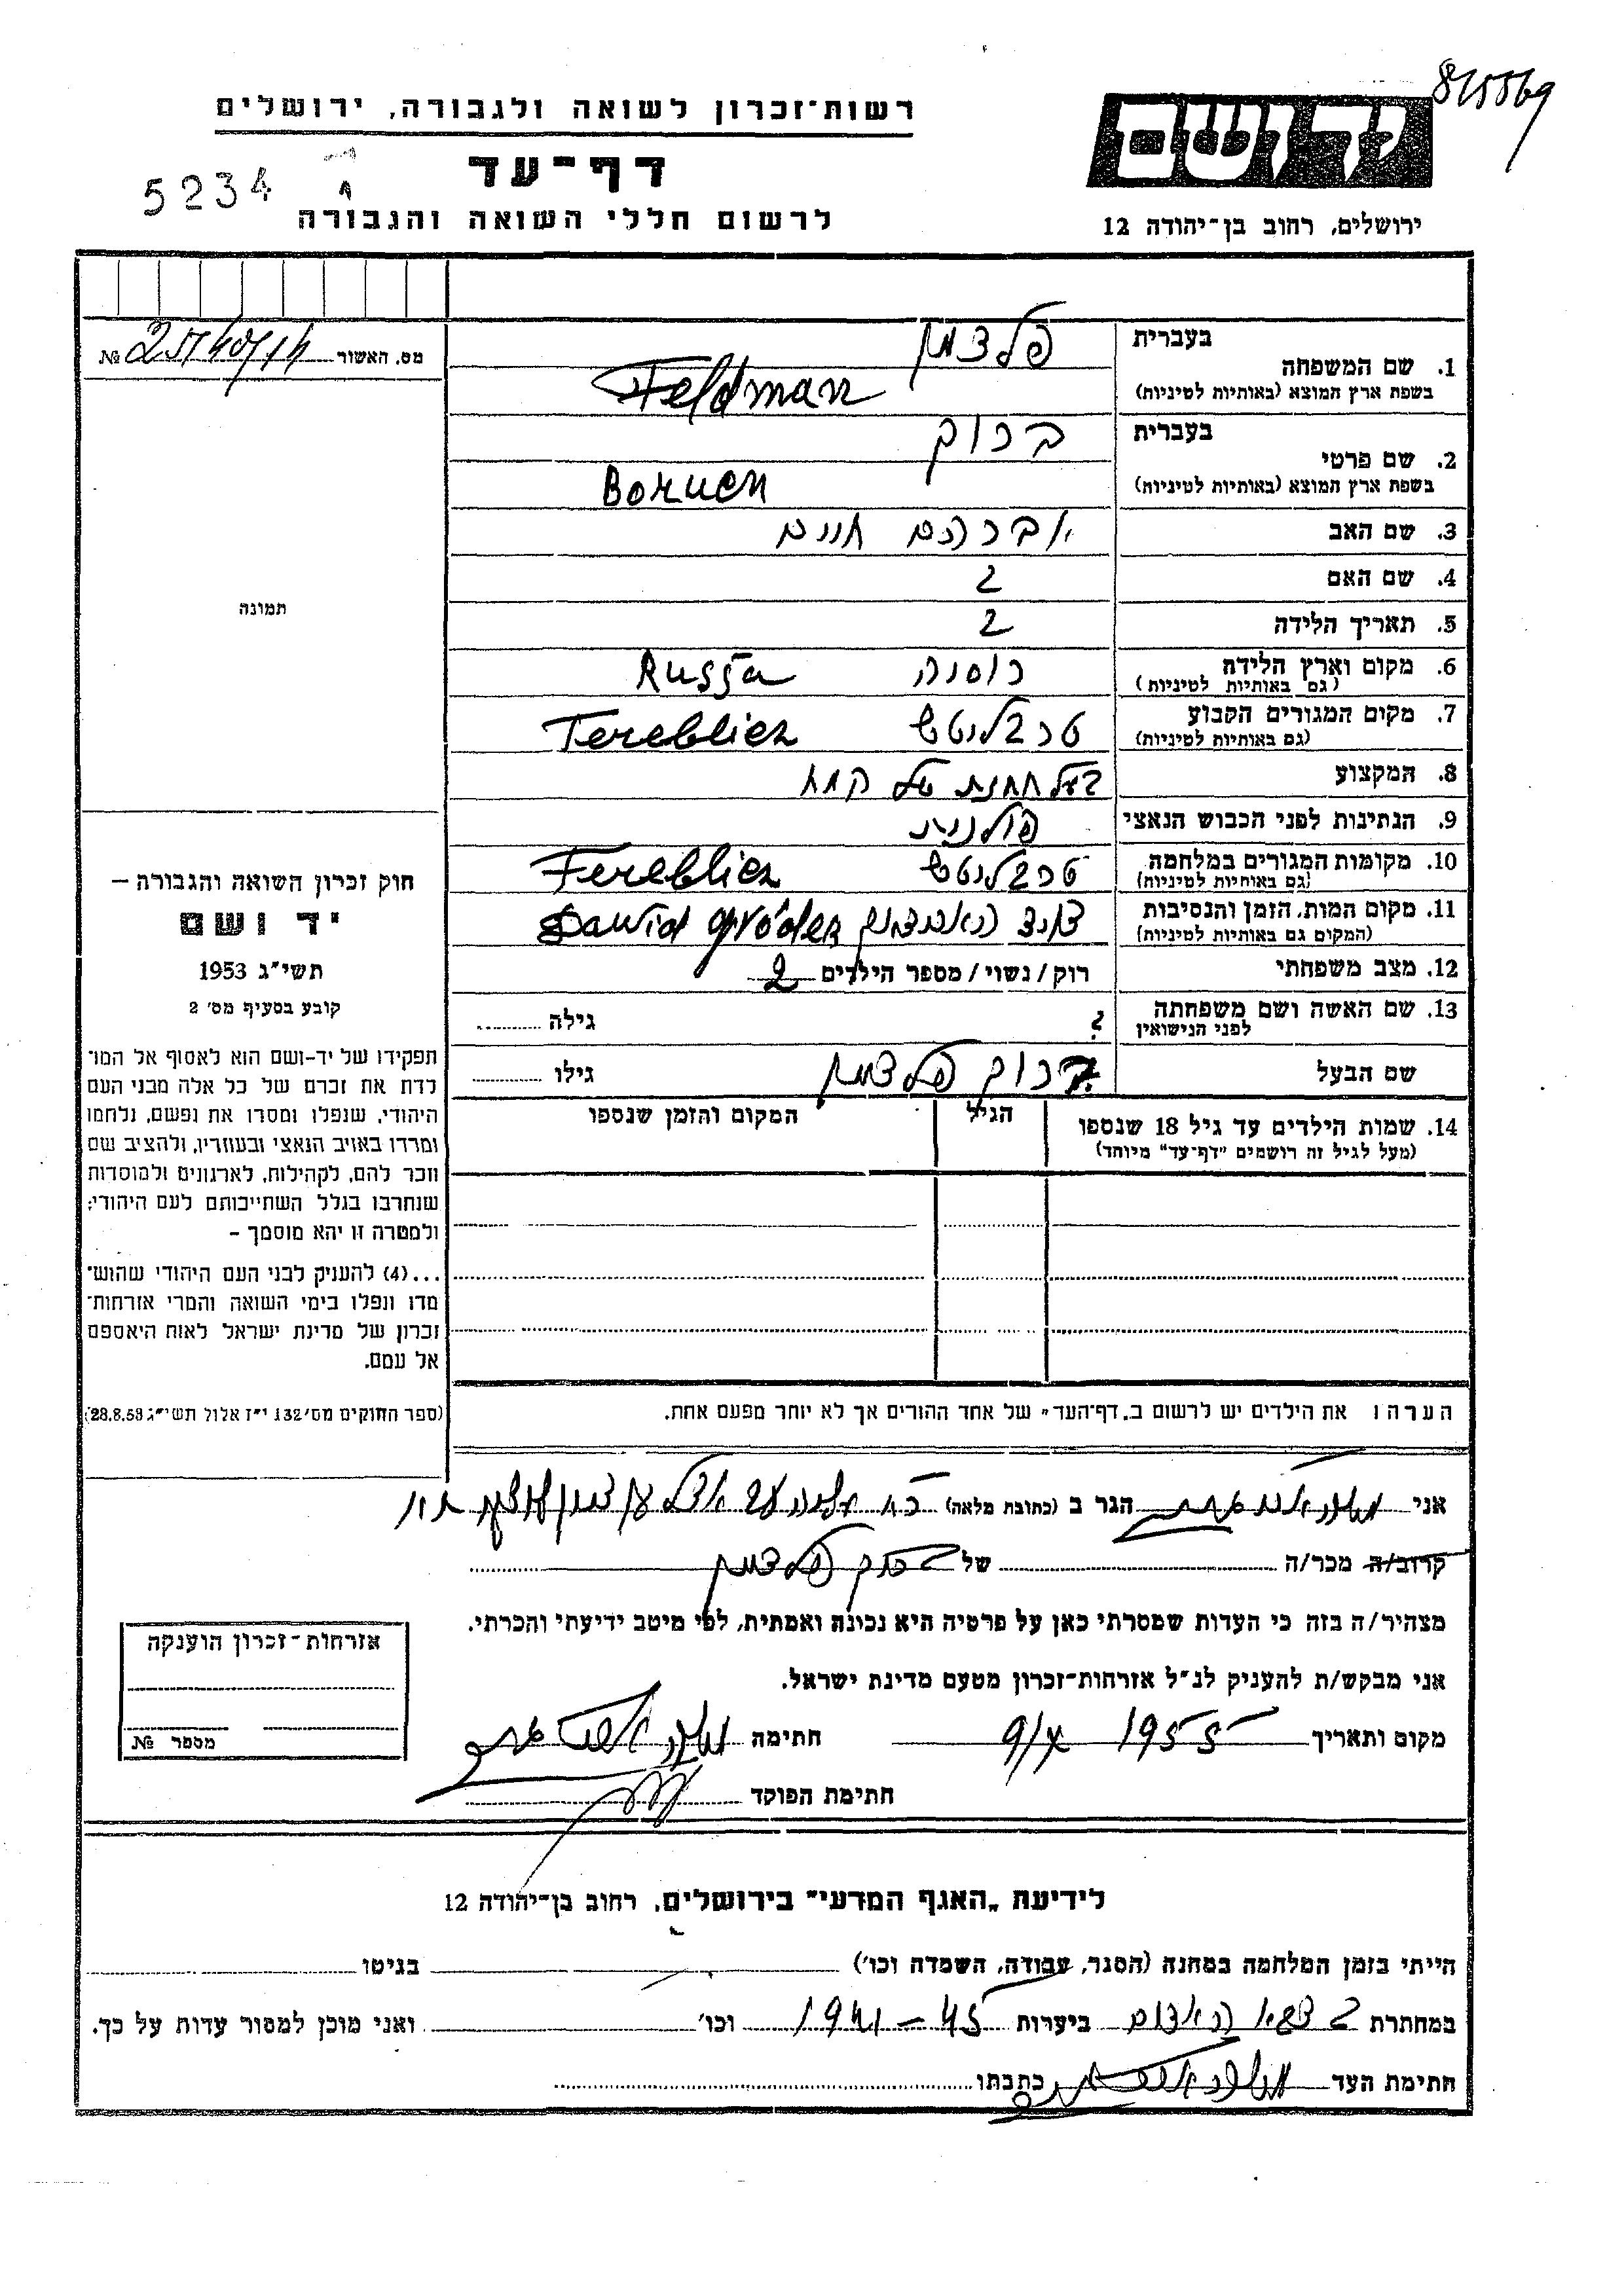 רשות־זכרון לשואה ולגבורה, ירושלים
דף־עד
לרשום חללי השואה והגבורה
5234
ידושם
ירושלים, רחוב בן־יהודה 12
מס. האשור №
בעברית פלדמן
1. שם המשפחה
בשפת ארץ המוצא (באותיות לטיניות) Feldman
בעברית ברוך
2. שם פרטי
בשפת ארץ המוצא (באותיות לטיניות) Boruch
3. שם האב אברהם חיים
4. שם האם ?
5. תאריך הלידה ?
6. מקום וארץ הלידה רוסיה Russja
(גם באותיות לטיניות)
7. מקום המגורים הקבוע טרבליטש Tereblicz
(גם באותיות לטיניות)
8. המקצוע בעל תחנת של קמח
9. הנתינות לפני הכבוש הנאצי פולנית
10. מקומות המגורים במלחמה טרבליטש Tereblicz
(גם באותיות לטיניות)
11. מקום המות, הזמן והנסיבות Dawid gródek
(המקום גם באותיות לטיניות)
12. מצב משפחתי רוק/נשוי/מספר הילדים 2
13. שם האשה ושם משפחתה ? גילה
לפני הנישואין
שם הבעל ברוך פלדמן גילו
14. שמות הילדים עד גיל 18 שנספו הגיל המקום והזמן שנספו
(מעל לגיל זה רושמים "דף־עד" מיוחד)
הערה: את הילדים יש לרשום ב„דף־העד" של אחד ההורים אך לא יותר מפעם אחת.
תמונה
חוק זכרון השואה והגבורה –
יד ושם
תשי"ג 1953
קובע בסעיף מס' 2
תפקידו של יד-ושם הוא לאסוף אל המו־
לדת את זכרם של כל אלה מבני העם
היהודי, שנפלו ומסרו את נפשם, נלחמו
ומרדו באויב הנאצי ובעוזריו, ולהציב שם
וזכר להם, לקהילות, לארגונים ולמוסדות
שנחרבו בגלל השתייכותם לעם היהודי;
ולמטרה זו יהא מוסמך –
...(4) להעניק לבני העם היהודי שהוש־
מדו ונפלו בימי השואה והמרי אזרחות־
זכרון של מדינת ישראל לאות היאספם
אל עמם.
(ספר החוקים מס' 132 י"ז אלול תשי"ג 28.8.53)
אני הגר ב (כתובת מלאה)
קרוב/ה מכר/ה של ברוך פלדמן
מצהיר/ה בזה כי העדות שמסרתי כאן על פרטיה היא נכונה ואמתית, לפי מיטב ידיעתי והכרתי.
אני מבקש/ת להעניק לנ"ל אזרחות־זכרון מטעם מדינת ישראל.
מקום ותאריך 1955 חתימה
חתימת הפוקד
אזרחות־זכרון הוענקה
מספר №
לידיעת „האגף המדעי" בירושלים, רחוב בן־יהודה 12
הייתי בזמן המלחמה במחנה (הסגר, עבודה, השמדה וכו') בגיטו
במחתרת ביערות 1941–45 וכו' ואני מוכן למסור עדות על כך.
חתימת העד כתבתו